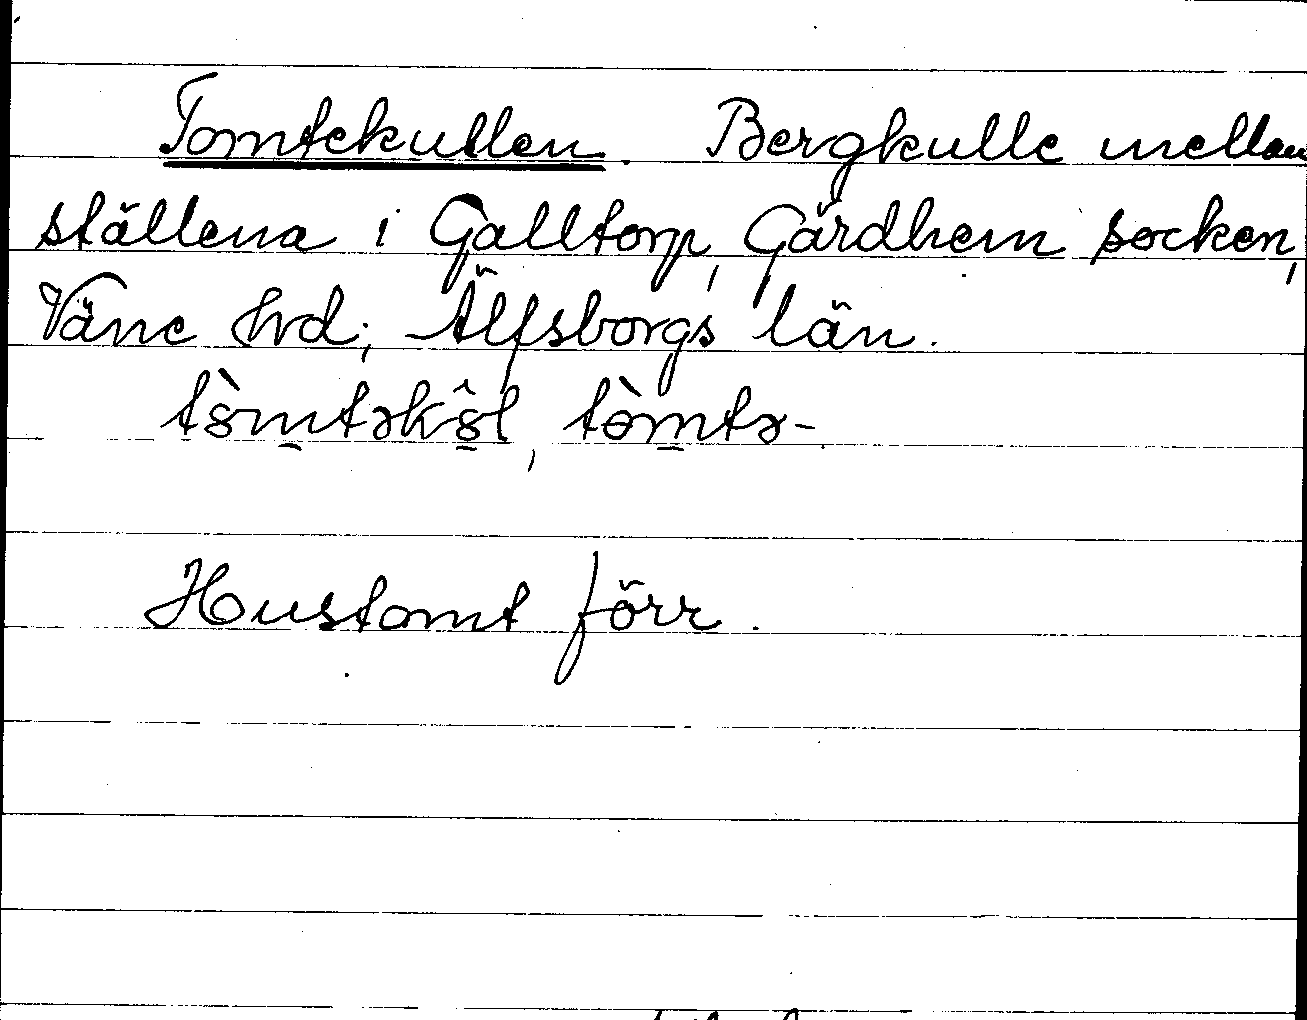 Tomtekullen. Bergkulle mellan
ställena i Galltorp, Gärdhem socken,
Väne hrd, Älfsborgs län.
tòmtəkôl, tòmtə-
Hustomt förr.